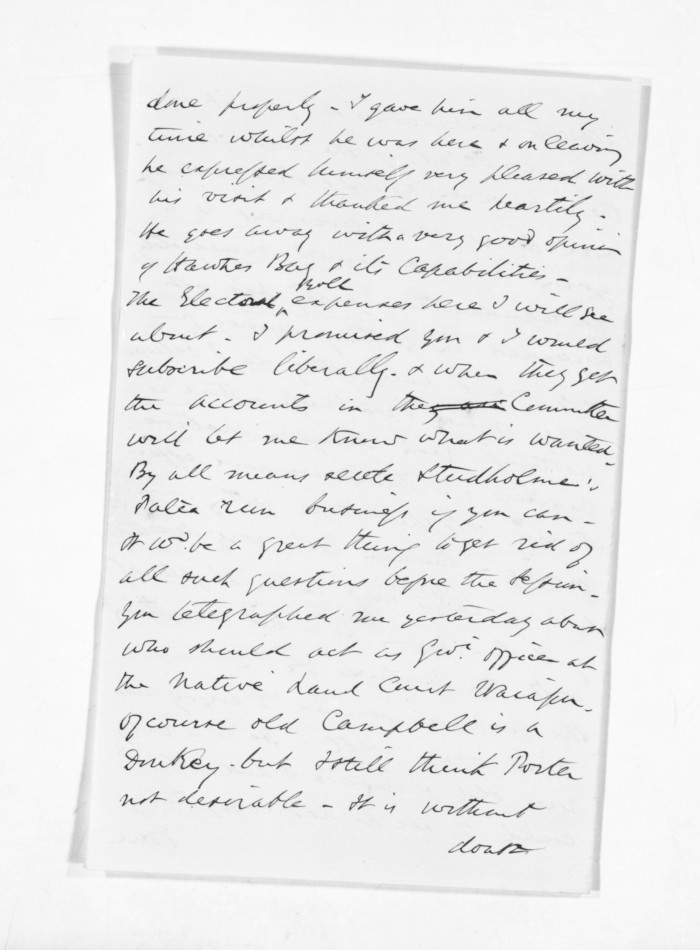 done properly - I gave him all my
time whilst he was here & on leaving
he expressed himself very pleased with
his visit & thanked me heartily -
He goes away with a very good opinion
of Hawkes Bay & its Capabilities -
The Electoral Roll expenses here I will see
about - I promised you & I would
subscribe liberally - & when they get
the accounts in the Committee
will let me know what is wanted -
By all means settle Studholme's
Patea run business if you can -
It wd. be a great thing to get rid of
all such questions before the Session -
You telegraphed me yesterday about
who should act as Govt. officer at
the Native Land Court Waiapu -
of course old Campbell is a
Donkey - but I still think Porter
not desirable - It is without
doubt